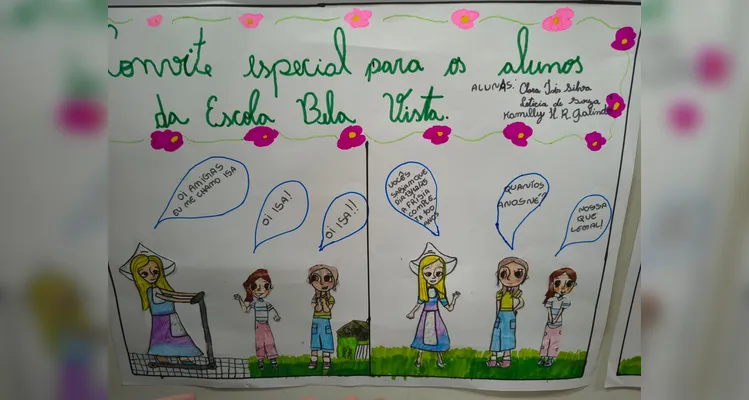 Convite especial para os alunos
da Escola Bela Vista.
ALUNAS: Clara Isis Silva
Leticia de Souza
Kamilly H. R. Galindo
OI AMIGAS
EU ME CHAMO ISA
OI ISA!
OI ISA!!
VOCÊS
SABIAM QUE
DIA
A FRÍSIA
COMPLE
TA 100
ANOS
QUANTOS
ANOS NÉ?
NOSSA
QUE
LEGAL!